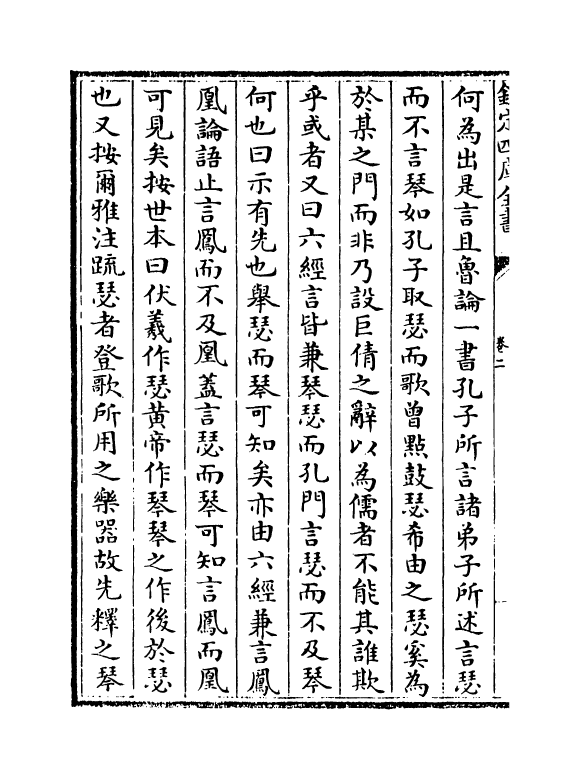 欽定四庫全書
卷二
何為出是言且魯論一書孔子所言諸弟子所述言瑟
而不言琴如孔子取瑟而歌曾點鼓瑟希由之瑟奚為
於某之門而非乃設巨倩之辭以為儒者不能其誰欺
乎或者又曰六經言皆兼琴瑟而孔門言瑟而不及琴
何也曰示有先也舉瑟而琴可知矣亦由六經兼言鳳
凰論語止言鳳而不及凰蓋言瑟而琴可知言鳳而凰
可見矣按世本曰伏羲作瑟黃帝作琴琴之作後於瑟
也又按爾雅注疏瑟者登歌所用之樂器故先釋之琴